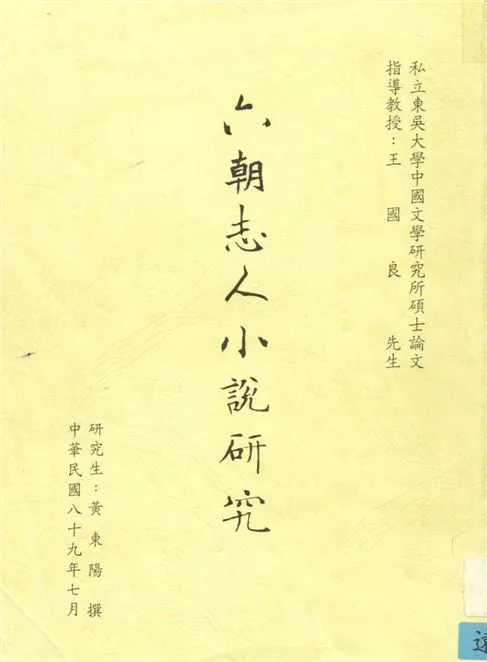 私立東吳大學中國文學研究所碩士論文
指導教授：王國良先生
六朝志人小說研究
研究生：黃東陽撰
中華民國八十九年七月
遠